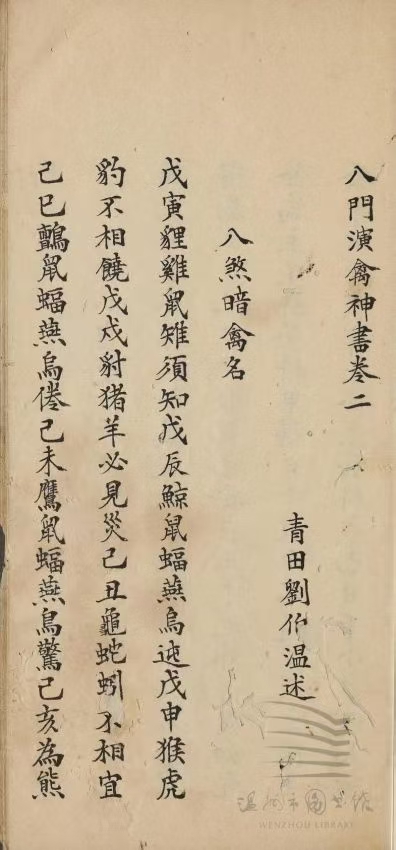 八門演禽神書卷二
青田劉伯温述
八煞暗禽名
戊寅貍雞鼠雉須知戊辰鯨鼠蝠燕烏迍戊申猴虎
豹不相饒戊戍豺猪羊必見災己丑龜蛇蚓不相宜
己巳鸇鼠蝠燕烏倦己未鷹鼠蝠燕鳥驚己亥為熊
温州市圖書館
WENZHOU LIBRARY